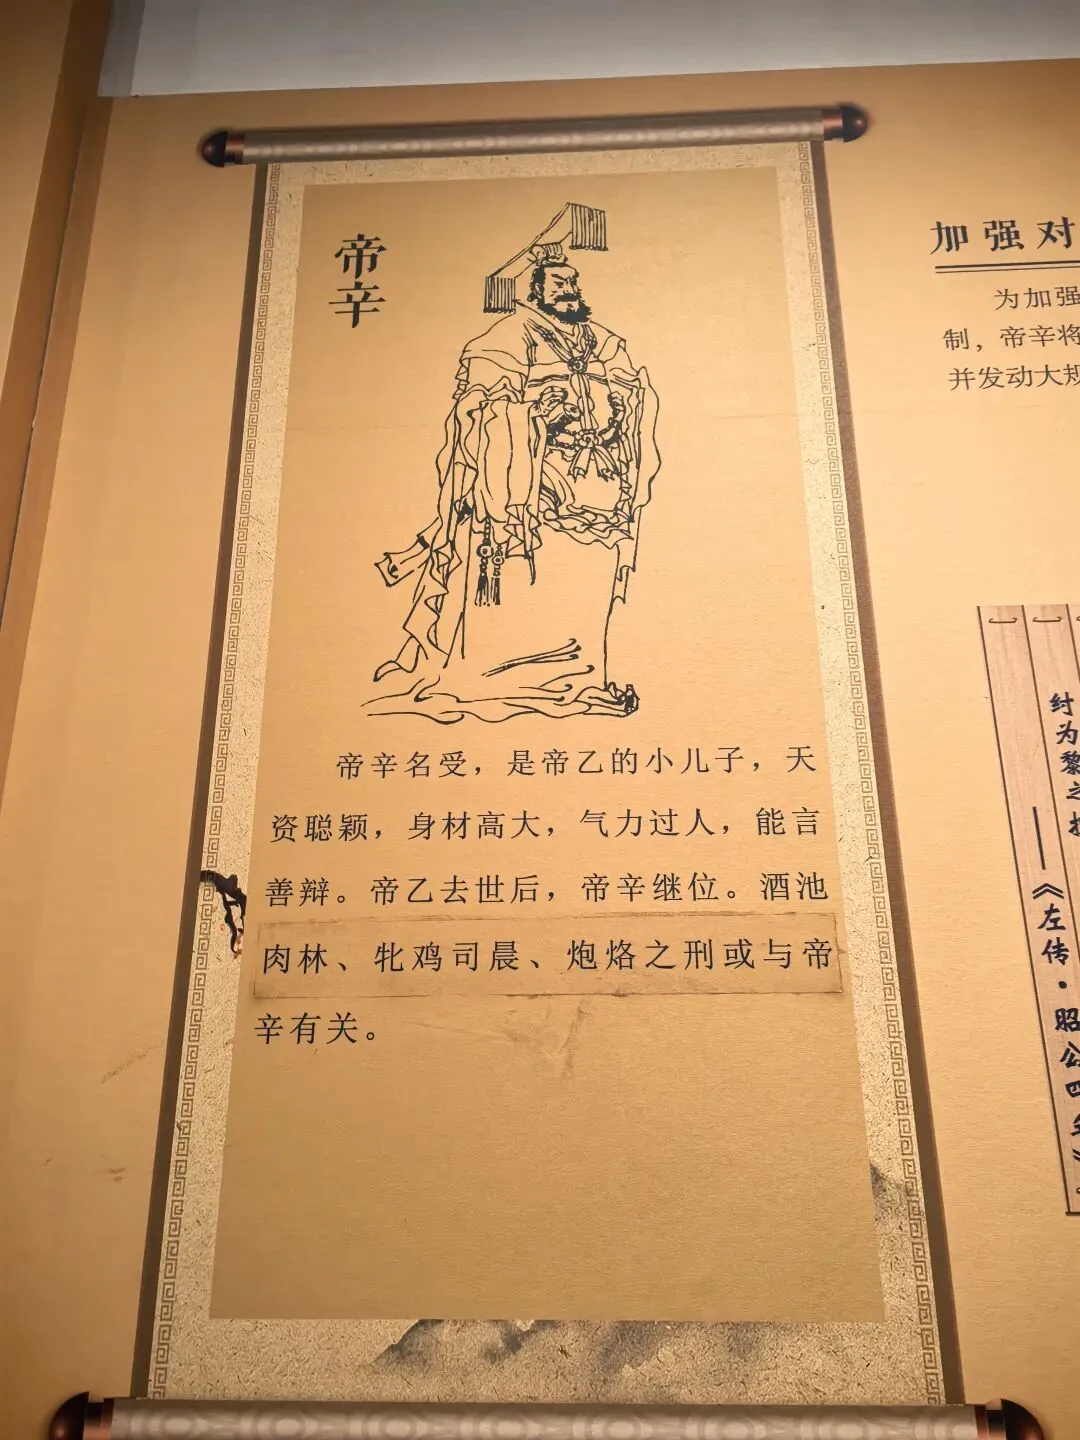 帝辛
帝辛名受，是帝乙的小儿子，天
资聪颖，身材高大，气力过人，能言
善辩。帝乙去世后，帝辛继位。酒池
肉林、牝鸡司晨、炮烙之刑或与帝
辛有关。
加强对
为加强
制，帝辛将
并发动大规
纣为黎之
——《左传·昭公四年》